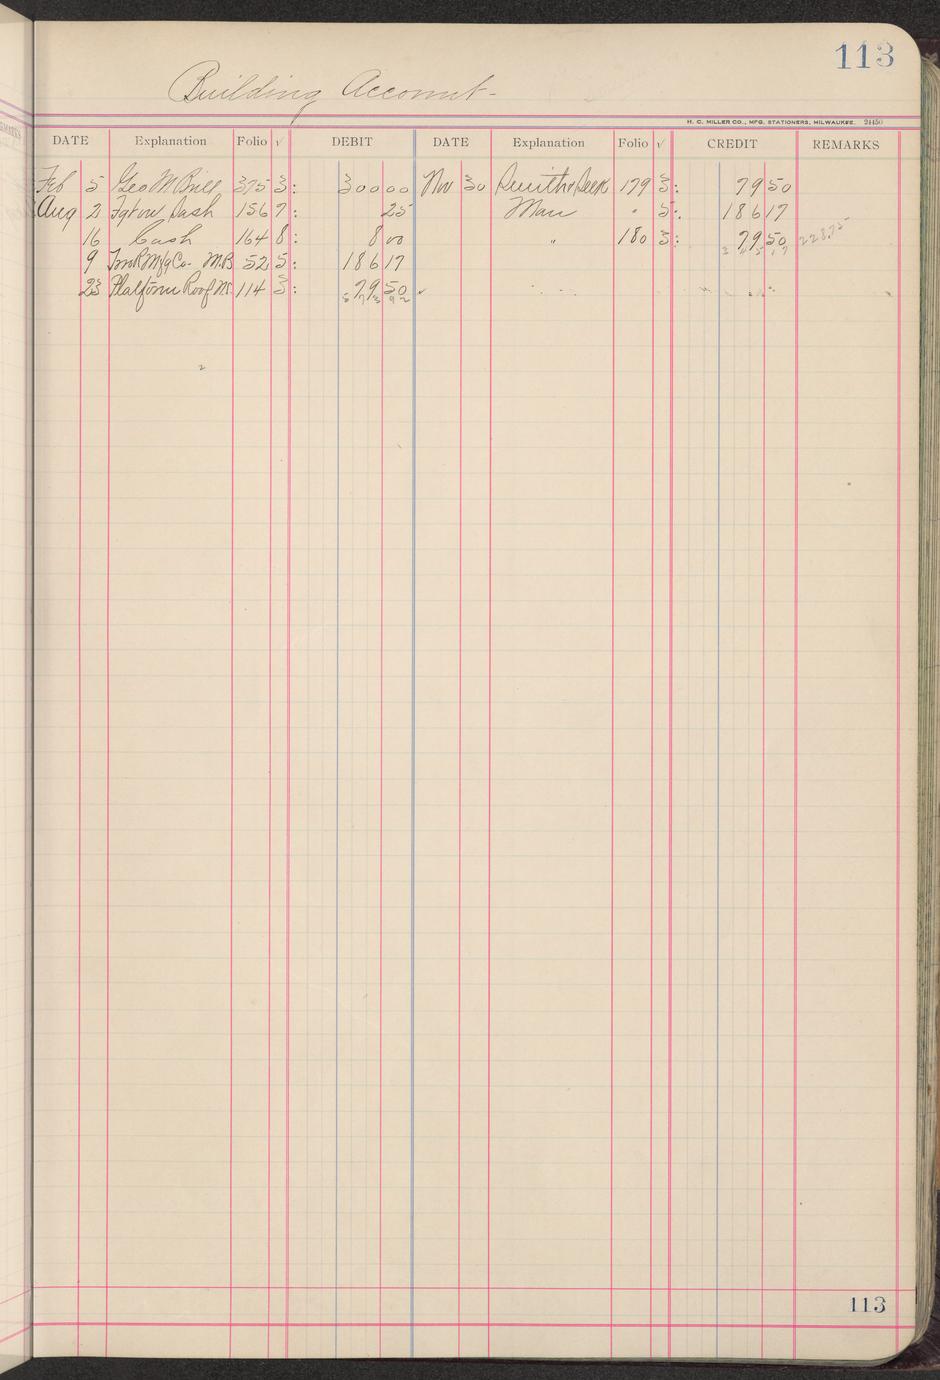 113
Building Account-
H. C. MILLER CO., MFG. STATIONERS, MILWAUKEE.
DATE Explanation Folio √ DEBIT DATE Explanation Folio √ CREDIT REMARKS
Feb 5 Geo M Brill 375 3: 300 00 Nov 30 179 3: 79 50
Aug 2 Sash 156 7: 25 " 5: 186 17
16 Cash 164 8: 8 00 " 180 3: 79 50 228.75
9 Mfg Co. M.B 52 5: 186 17
23 Platform Roof 114 3: 79 50
113